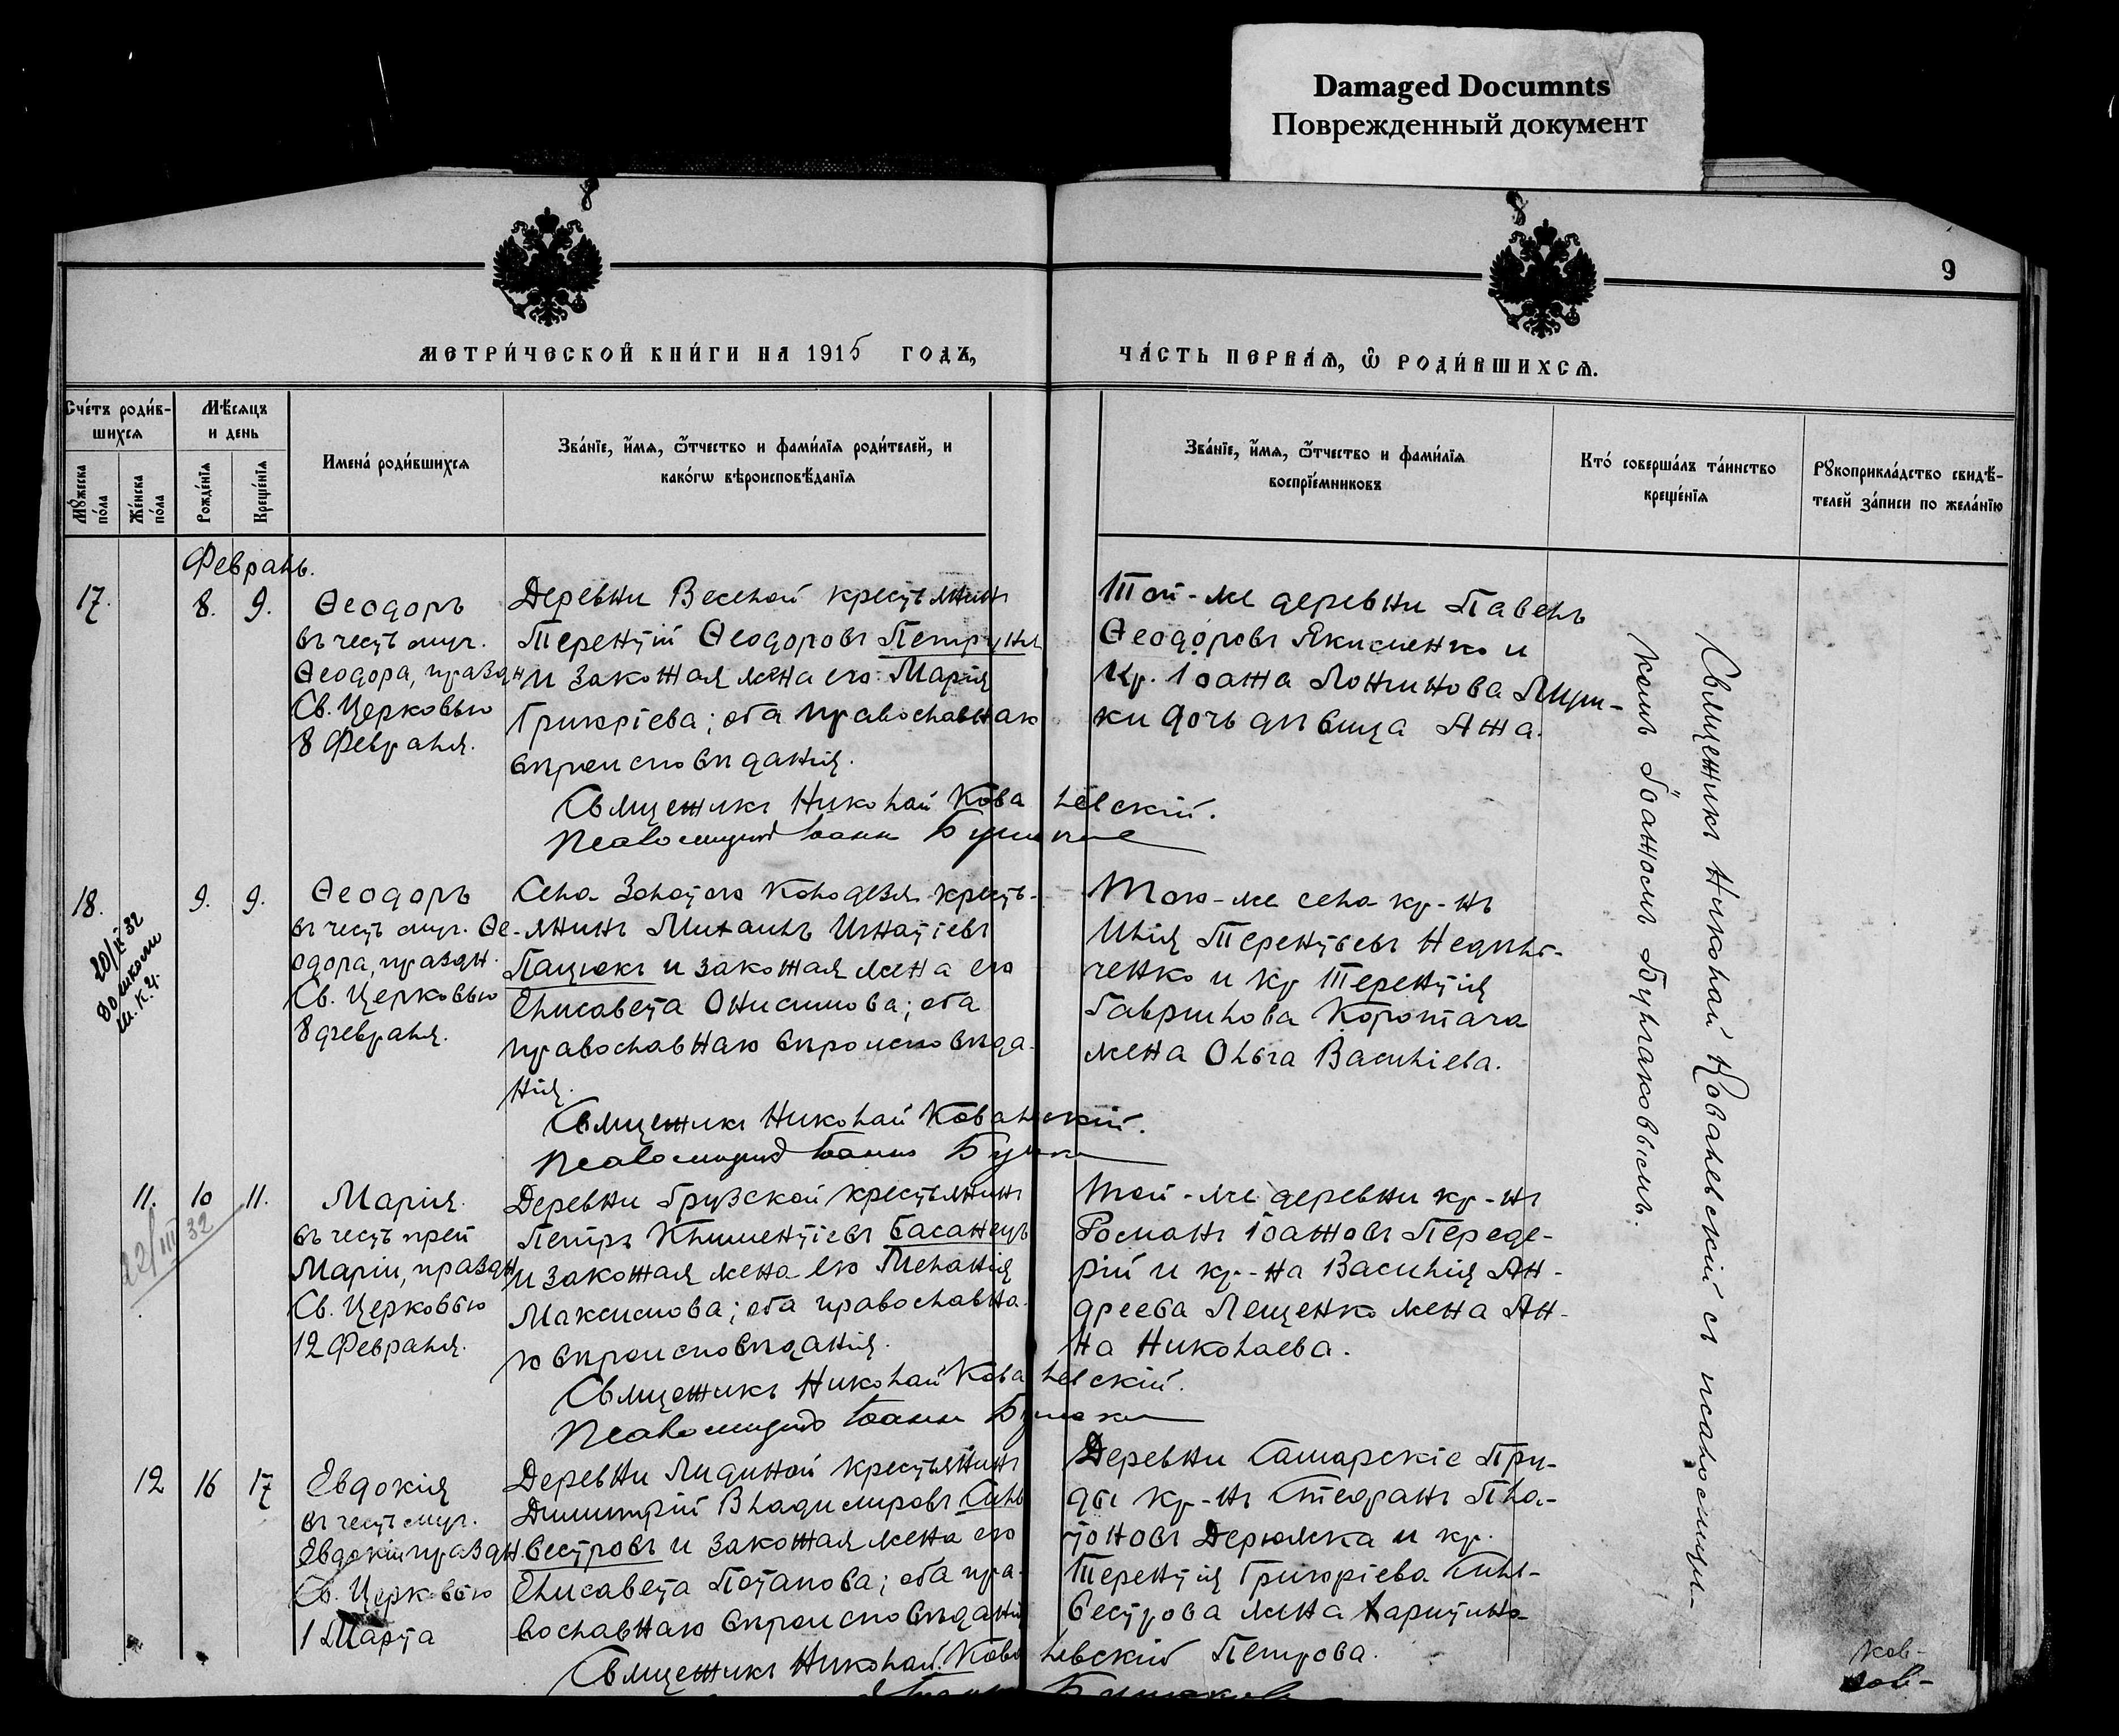 Damaged Documnts
Поврежденный документ
8
8
9
МЕТРИ́ЧЕСКОЙ КНИ́ГИ НА 1915 ГОДЪ,
ЧА́СТЬ ПЕРВА́Ѧ, Ѽ РОДИ́ВШИХСѦ.
Сче́тъ роди́в-
шихсѧ
Мꙋ́жеска по́ла
Же́нска по́ла
Мѣ́сѧцъ
и день
Рожде́нїѧ
Креще́нїѧ
Имена́ роди́вшихсѧ
Зва́нїе, и́мѧ, ѻ́тчество и фами́лїѧ роди́телей, и
како́гѡ вѣроисповѣ́данїѧ
Зва́нїе, и́мѧ, ѻ́тчество и фами́лїѧ
воспрїе́мниковъ
Кто́ соверша́лъ та́инство
креще́нїѧ
Рꙋкоприкла́дство свидѣ́-
телей за́писи по жела́нїю
Февраль.
17.
8.
9.
Ѳеодоръ
въ честь муч.
Ѳеодора, праздн
Св. Церковью
8 Февраля.
Деревни Веселой крестьянинъ
Терентій Ѳеодоровъ
и законная жена его Марія
Григоріева; оба православнаго
вѣроисповѣданія.
Священникъ Николай Ковалевскій.
Псаломщикъ Іоаннъ
Той-же деревни Павелъ
Ѳеодоровъ Якименко и
кр. Іоанна Логинова
дочь дѣвица Анна.
18.
9.
9.
20/II 32
Ѳеодоръ
въ честь муч. Ѳе-
одора, праздн.
Св. Церковью
8 февраля.
Села Золотого Колодезя кресть-
янинъ Михаилъ Игнатіевъ
Пацюкъ и законная жена его
Елисавета Онисимова; оба
православнаго вѣроисповѣда-
нія.
Священникъ Николай Ковалевскій.
Псаломщикъ Іоаннъ
Того-же села кр-нъ
Илія Терентьевъ Неділь-
ченко и кр Терентія
Гаврилова Коротача
жена Ольга Василіева.
11.
10
11.
22/III 32
Марія
въ честь преп
Маріи, праздн
Св. Церковью
12 Февраля.
Деревни Грузской крестьянинъ
Петръ Климентіевъ Басанецъ
и законная жена его Меланія
Максимова; оба православна-
го вѣроисповѣданія.
Священникъ Николай Ковалевскій.
Псаломщикъ Іоаннъ
Той-же деревни кр-нъ
Романъ Іоанновъ Переде-
рій и кр-на Василія Ан-
дреева Лещенко жена Ан-
на Николаева.
12
16
17
Евдокія
въ честь муч.
Евдокіи праздн.
Св. Церковью
1 Марта
Деревни Лидиной крестьянинъ
Димитрій Владимировъ Силь
вестровъ и законная жена его
Елисавета Потапова; оба пра-
вославнаго вѣроисповѣданія
Священникъ Николай Ковалевскій
Деревни Самарскіе Пру-
ды кр-нъ Стефанъ Пла-
тоновъ Дерюжка и кр.
Терентія Григоріева Силь-
вестрова жена Харитина
Петрова.
Священникъ Николай Ковалевскій съ псаломщи-
комъ Іоанномъ Булгаковымъ.
ков-
ков-